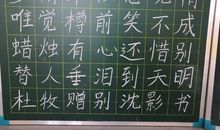 唯觉樽前笑不成
蜡烛有心还惜别
替人垂泪到天明
杜牧赠别沈影书